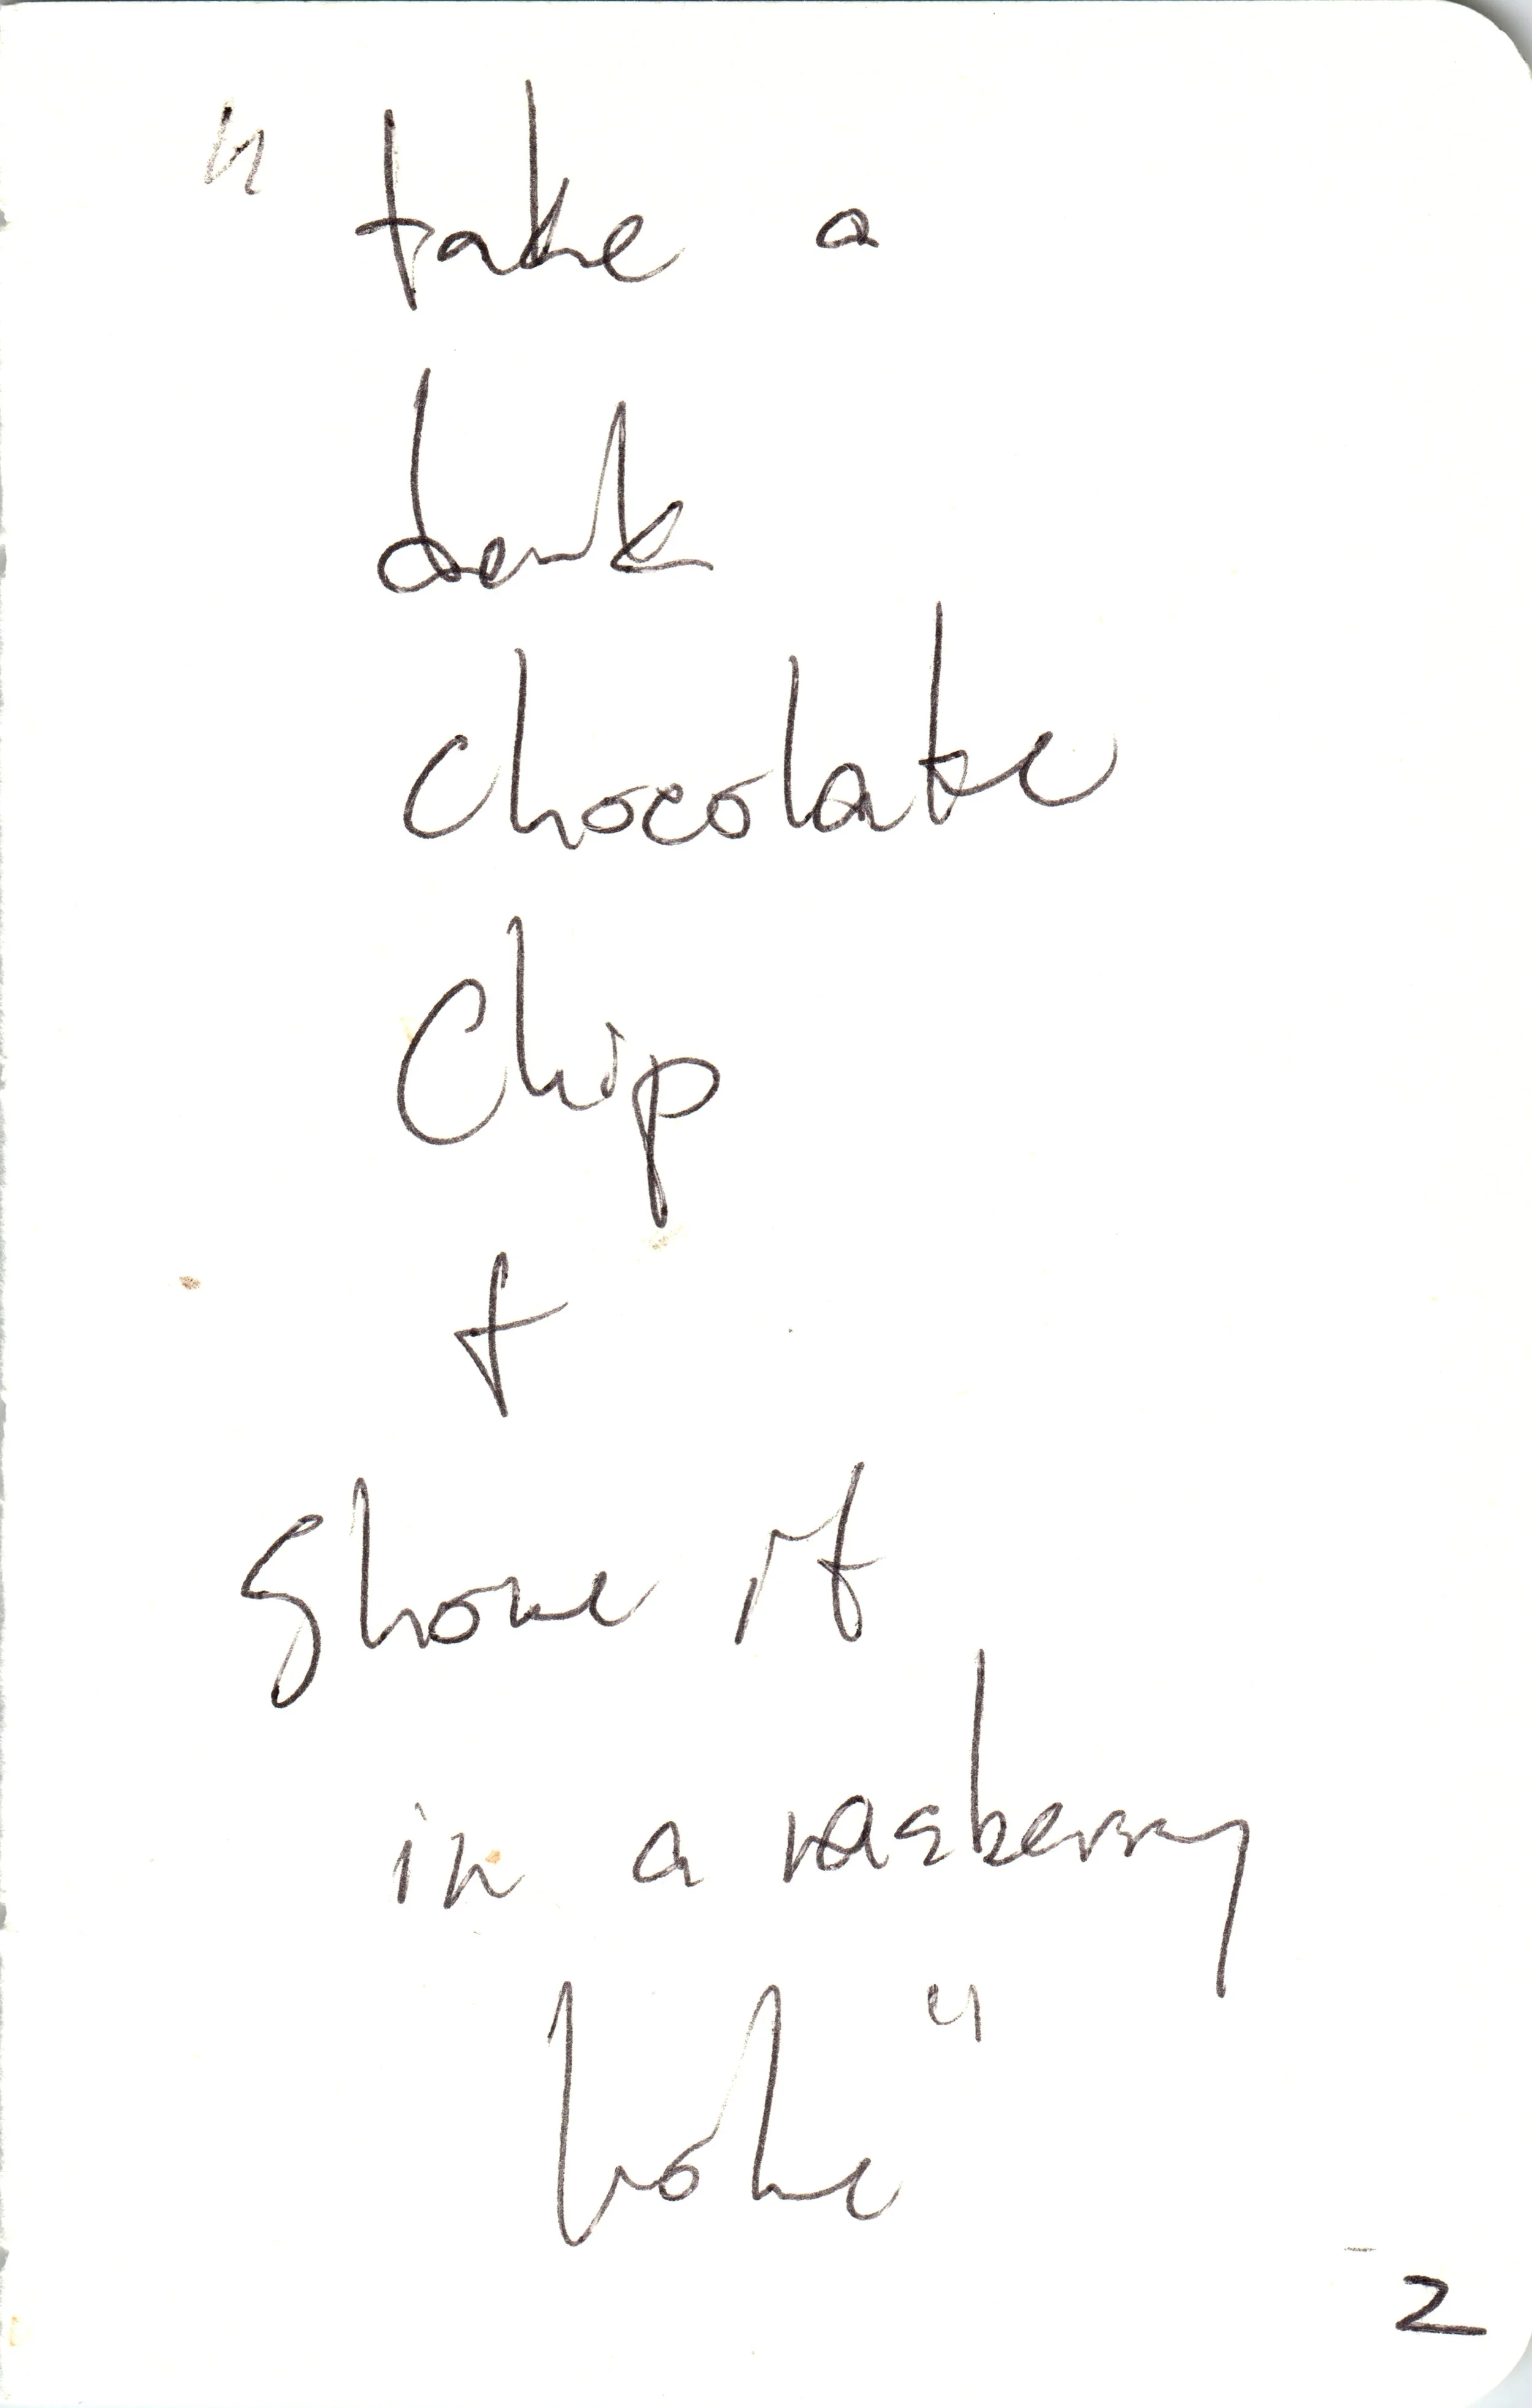 "take a
dark
chocolate
chip
+
shove it
in a rasberry
hole"
2